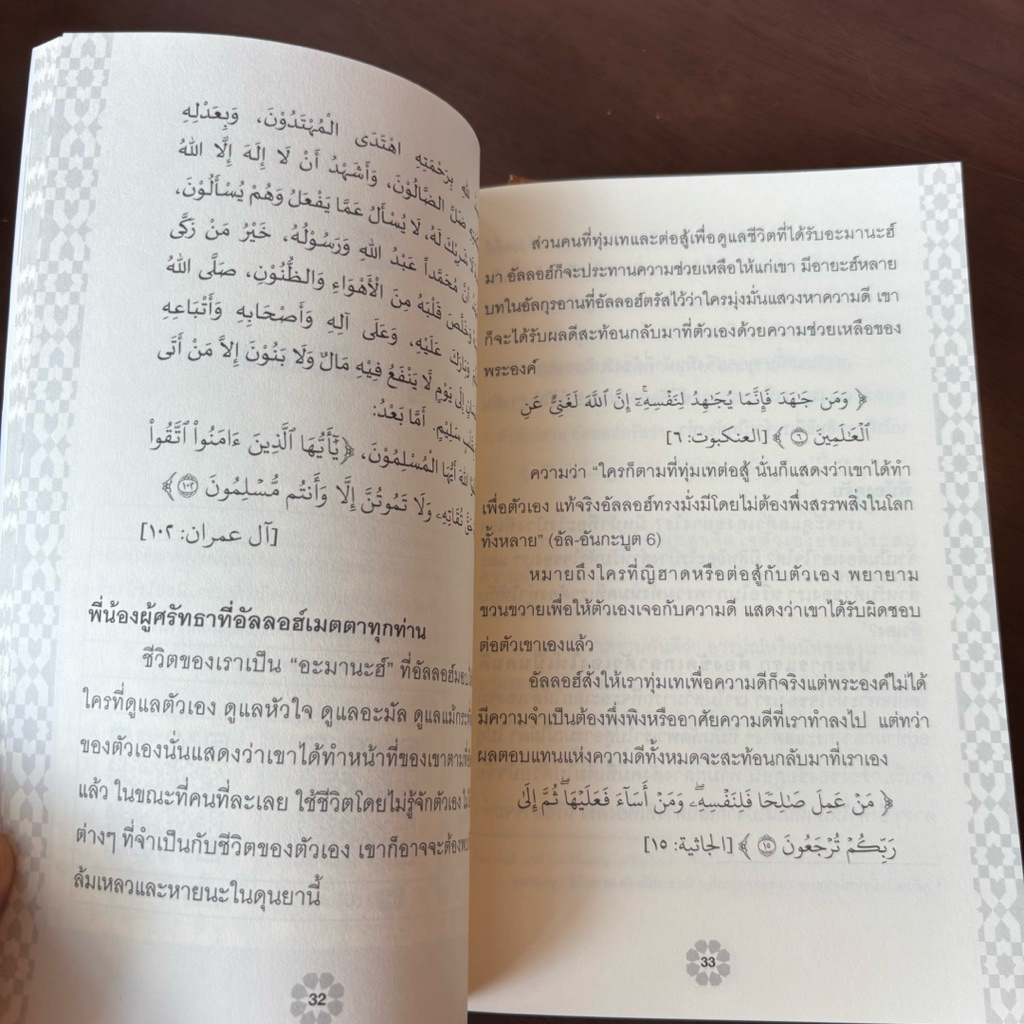 للهِ بِرَحْمَتِهِ اهْتَدَى الْمُهْتَدُوْنَ، وَبِعَدْلِهِ
ضَلَّ الضَّالُّوْنَ، وَأَشْهَدُ أَنْ لَا إِلَهَ إِلَّا اللهُ
شَرِيْكَ لَهُ، لَا يُسْأَلُ عَمَّا يَفْعَلُ وَهُمْ يُسْأَلُوْنَ،
أَنَّ مُحَمَّداً عَبْدُ اللهِ وَرَسُوْلُهُ، خَيْرُ مَنْ زَكَّى
وَخَلَّصَ قَلْبَهُ مِنَ الْأَهْوَاءِ وَالظُّنُوْنِ، صَلَّى اللهُ
وَبَارَكَ عَلَيْهِ، وَعَلَى آلِهِ وَأَصْحَابِهِ وَأَتْبَاعِهِ
إِلَى يَوْمٍ لَّا يَنْفَعُ فِيْهِ مَالٌ وَلَا بَنُوْنَ إِلاَّ مَنْ أَتَى
سَلِيْمٍ. أَمَّا بَعْدُ:
أَيُّهَا الْمُسْلِمُوْنَ، ﴿يَٰٓأَيُّهَا ٱلَّذِينَ ءَامَنُواْ ٱتَّقُواْ
تُقَاتِهِۦ وَلَا تَمُوتُنَّ إِلَّا وَأَنتُم مُّسْلِمُونَ ١٠٢﴾
[آل عمران: ١٠٢]
พี่น้องผู้ศรัทธาที่อัลลอฮ์เมตตาทุกท่าน
ชีวิตของเราเป็น “อะมานะฮ์” ที่อัลลอฮ์
ใครที่ดูแลตัวเอง ดูแลหัวใจ ดูแลอะมัล
ของตัวเองนั่นแสดงว่าเขาได้ทำหน้าที่ของเขา
แล้ว ในขณะที่คนที่ละเลย ใช้ชีวิตโดยไม่รู้จักตัวเอง
ต่างๆ ที่จำเป็นกับชีวิตของตัวเอง เขาก็อาจจะต้อง
ล้มเหลวและหายนะในดุนยานี้
32
ส่วนคนที่ทุ่มเทและต่อสู้เพื่อดูแลชีวิตที่ได้รับอะมานะฮ์
มา อัลลอฮ์ก็จะประทานความช่วยเหลือให้แก่เขา มีอายะฮ์หลาย
บทในอัลกุรอานที่อัลลอฮ์ตรัสไว้ว่าใครมุ่งมั่นแสวงหาความดี เขา
ก็จะได้รับผลดีสะท้อนกลับมาที่ตัวเองด้วยความช่วยเหลือของ
พระองค์
﴿ وَمَن جَٰهَدَ فَإِنَّمَا يُجَٰهِدُ لِنَفْسِهِۦٓۚ إِنَّ ٱللَّهَ لَغَنِيٌّ عَنِ
ٱلْعَٰلَمِينَ ٦ ﴾ [العنكبوت: ٦]
ความว่า “ใครก็ตามที่ทุ่มเทต่อสู้ นั่นก็แสดงว่าเขาได้ทำ
เพื่อตัวเอง แท้จริงอัลลอฮ์ทรงมั่งมีโดยไม่ต้องพึ่งสรรพสิ่งในโลก
ทั้งหลาย” (อัล-อันกะบูต 6)
หมายถึงใครที่ญิฮาดหรือต่อสู้กับตัวเอง พยายาม
ขวนขวายเพื่อให้ตัวเองเจอกับความดี แสดงว่าเขาได้รับผิดชอบ
ต่อตัวเขาเองแล้ว
อัลลอฮ์สั่งให้เราทุ่มเทเพื่อความดีก็จริงแต่พระองค์ไม่ได้
มีความจำเป็นต้องพึ่งพิงหรืออาศัยความดีที่เราทำลงไป แต่ทว่า
ผลตอบแทนแห่งความดีทั้งหมดจะสะท้อนกลับมาที่เราเอง
﴿ مَنْ عَمِلَ صَٰلِحًا فَلِنَفْسِهِۦۖ وَمَنْ أَسَآءَ فَعَلَيْهَاۖ ثُمَّ إِلَىٰ
رَبِّكُمْ تُرْجَعُونَ ١٥ ﴾ [الجاثية: ١٥]
33